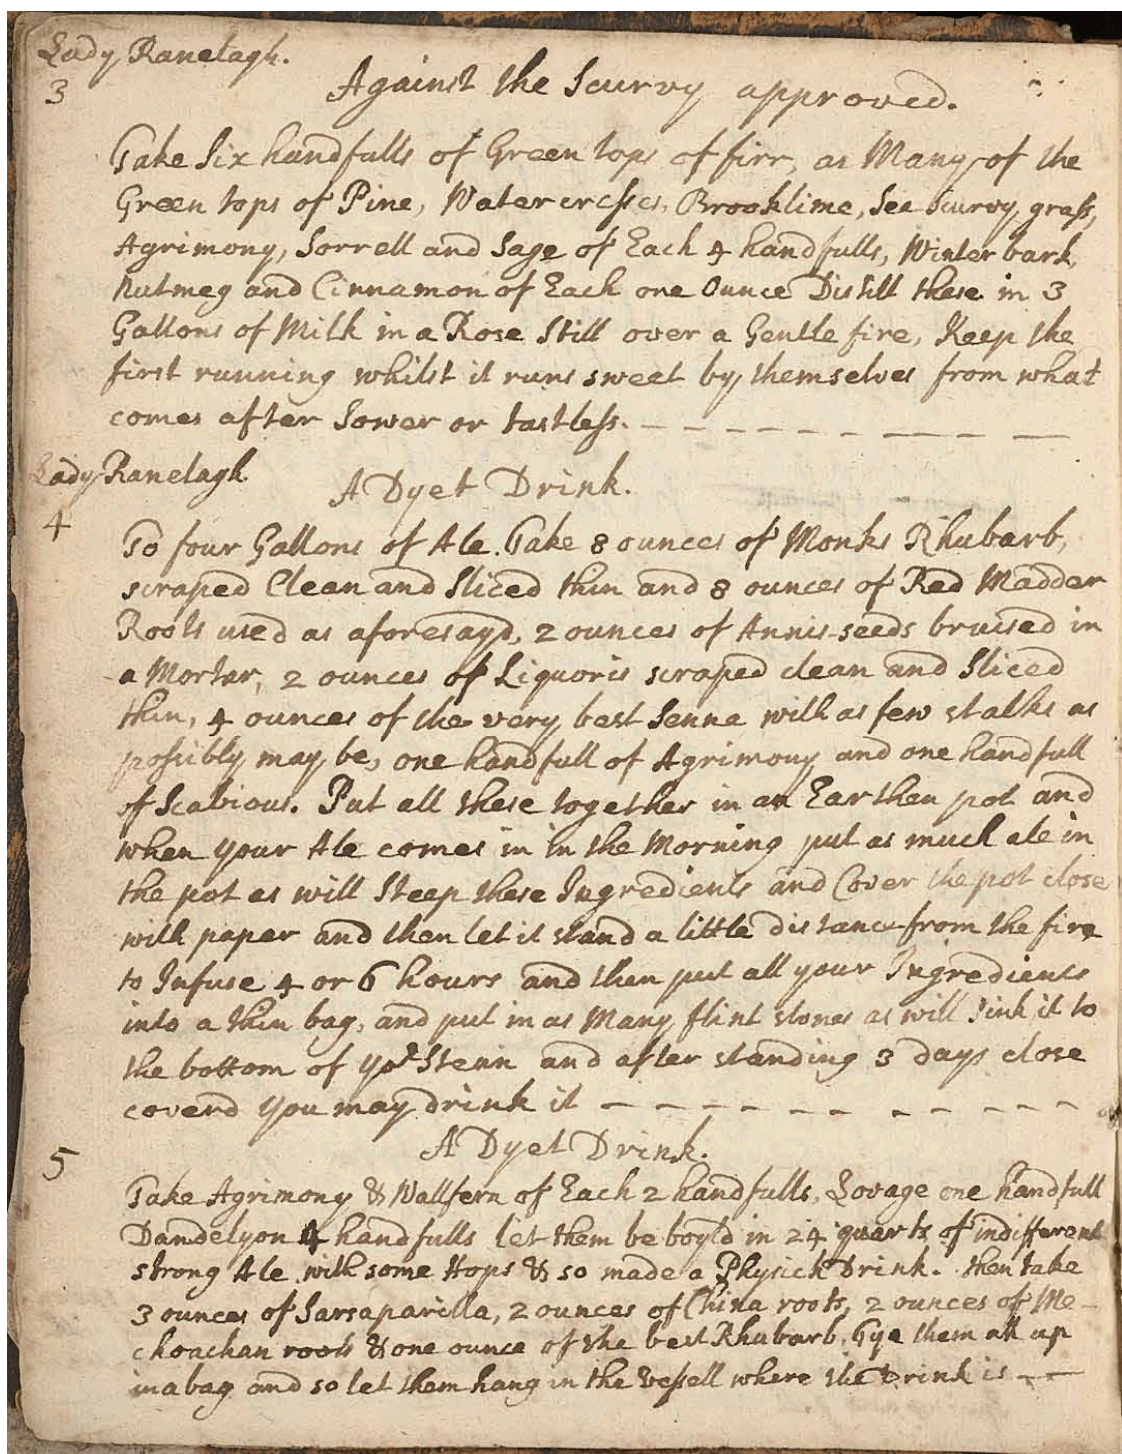 Lady Ranelagh.
3
Against the Scurvy approved.
Take Six handfulls of Green tops of firr, as Many of the
Green tops of Pine, Watercresses, Brooklime, Sea Scurvy grass,
Agrimony, Sorrell and Sage of Each 4 handfulls, Winter bark,
Nutmeg and Cinnamon of Each one Ounce Distill these in 3
Gallons of Milk in a Rose Still over a Gentle fire, Keep the
first running whilst it runs sweet by themselves from what
comes after Sower or tastless.
Lady Ranelagh
4
A Dyet Drink.
To four Gallons of Ale. Take 8 ounces of Monks Rhubarb,
scraped Clean and Sliced thin and 8 ounces of Red Madder
Roots used as aforesayd, 2 ounces of Annis-seeds bruised in
a Morter, 2 ounces of Liquoris scraped clean and Sliced
thin, 4 ounces of the very best Senna with as few stalks as
possibly may be, one handfull of Agrimony and one handfull
of Scabious. Put all these together in an Earthen pot and
when your Ale comes in in the Morning put as much ale in
the pot as will Steep these Ingredients and Cover the pot close
with paper and then let it stand a little distance from the fire
to Infuse 4 or 6 hours and then put all your Ingredients
into a thin bag, and put in as Many flint stones as will Sink it to
the bottom of yor Stean and after standing 3 days close
coverd you may drink it
5
A Dyet Drink.
Take Agrimony & Wallfern of Each 2 handfulls, Lovage one handfull
Dandelyon 4 handfulls let them be boyl'd in 24 quarts of indifferent
strong Ale with some Hops & so made a Physick Drink. then take
3 ounces of Sarsaparilla, 2 ounces of China roots, 2 ounces of Me-
choachan roots & one ounce of the best Rhubarb, Tye them all up
in a bag and so let them hang in the Vessell where the Drink is